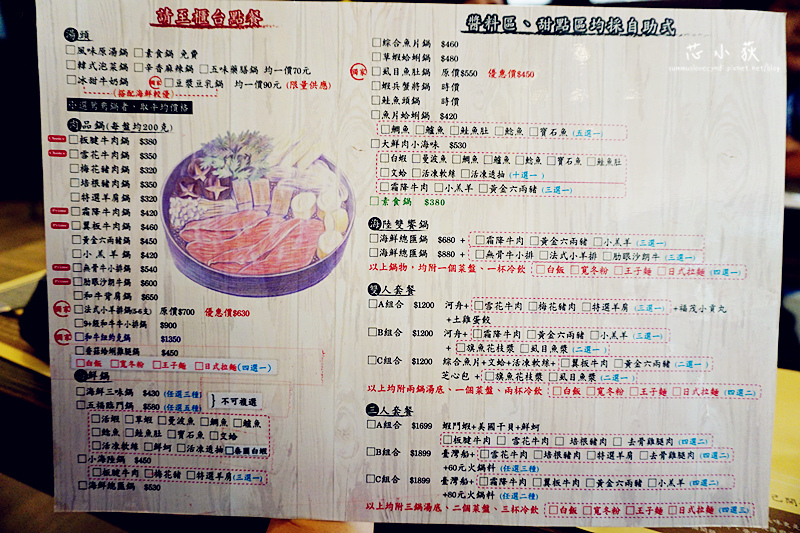 請至櫃台點餐
湯頭
□風味原湯鍋 □素食鍋 免費
□韓式泡菜鍋 □辛香麻辣鍋 □五味藥膳鍋 均一價70元
□冰甜牛奶鍋 獨家 □豆漿豆乳鍋 均一價90元 (限量供應)
(搭配海鮮較優)
肉品鍋 (每盤均200克)
□板腱牛肉鍋 $380
□雪花牛肉鍋 $350
□梅花豬肉鍋 $320
□培根豬肉鍋 $350
□特選羊肩鍋 $320
□霜降牛肉鍋 $420
□翼板牛肉鍋 $460
□黃金六兩豬鍋 $450
□小羔羊鍋 $420
□無骨牛小排鍋 $540
□肋眼沙朗牛鍋 $600
□和牛背肩鍋 $650
獨家 □法式小羊排鍋(5支) 原價$700 優惠價$630
□9+級和牛牛小排鍋 $900
獨家 □和牛紐約克鍋 $1350
□香菇蛤蜊雞腿鍋 $450
□白飯 □寬冬粉 □王子麵 □日式拉麵(四選一)
海鮮鍋
□海鮮三味鍋 $430 (任選三種)
□五福臨門鍋 $580 (任選五種) } 不可複選
□活蝦 □草蝦 □曼波魚 □鯛魚 □鱸魚
□鯰魚 □鮭魚肚 □寶石魚 □文蛤
□活凍軟絲 □鮮蚵 □活凍透抽 □泰國白蝦
□小海陸鍋 $450
□板腱牛肉 □梅花豬 □特選羊肩(三選一)
□海鮮總匯鍋 $530
醬料區、甜點區均採自助式
芯小荻
□綜合魚片鍋 $460
□草蝦蛤蜊鍋 $480
獨家 □虱目魚肚鍋 原價$550 優惠價$450
□蝦兵蟹將鍋 時價
□鮭魚頭鍋 時價
□魚片蛤蜊鍋 $420
□鯛魚 □鱸魚 □鮭魚肚 □鯰魚 □寶石魚 (五選一)
□大鮮肉小海味 $530
□白蝦 □曼波魚 □鯛魚 □鱸魚 □鯰魚 □寶石魚 □鮭魚肚
□文蛤 □活凍軟絲 □活凍透抽 (十選一)
□霜降牛肉 □小羔羊 □黃金六兩豬 (三選一)
□素食鍋 $380
海陸雙饗鍋
□海鮮總匯鍋 $680 + □霜降牛肉 □黃金六兩豬 □小羔羊 (三選一)
□海鮮總匯鍋 $880 + □無骨牛小排 □法式小羊排 □肋眼沙朗牛 (三選一)
以上鍋物，均附一個菜盤、一杯冷飲 □白飯 □寬冬粉 □王子麵 □日式拉麵 (四選一)
雙人套餐
□A組合 $1200 河舟+ □雪花牛肉 □梅花豬肉 □特選羊肩 (三選一) +福茂小貢丸
+土雞蛋餃
□B組合 $1200 河舟+ □霜降牛肉 □黃金六兩豬 □小羔羊 (三選一)
+ □旗魚花枝漿 □虱目魚漿 (二選一)
□C組合 $1200 綜合魚片+文蛤+活凍軟絲+ □翼板牛肉 □黃金六兩豬 (二選一)
芝心包+ □旗魚花枝漿 □虱目魚漿 (二選一)
以上均附兩鍋湯底、一個菜盤、兩杯冷飲 □白飯 □寬冬粉 □王子麵 □日式拉麵 (四選二)
三人套餐
□A組合 $1699 蝦鬥蝦+美國干貝+鮮蚵
□板腱牛肉 □雪花牛肉 □培根豬肉 □去骨雞腿肉 (四選二)
□B組合 $1899 臺灣船+ □雪花牛肉 □培根豬肉 □特選羊肩 □去骨雞腿肉 (四選二)
+60元火鍋料 (任選三種)
□C組合 $1899 臺灣船+ □霜降牛肉 □翼板牛肉 □黃金六兩豬 □小羔羊 (四選二)
+80元火鍋料 (任選二種)
以上均附三鍋湯底、二個菜盤、三杯冷飲 □白飯 □寬冬粉 □王子麵 □日式拉麵 (四選三)